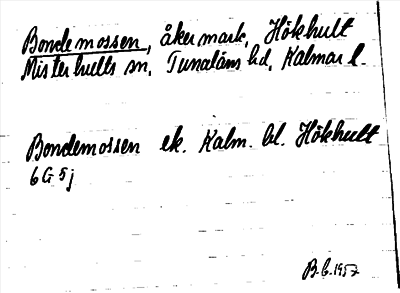 Bondemossen, åkermark, Hökhult
Misterhults sn, Tunaläns hd, Kalmar l.
Bondemossen ek. Kalm. bl. Hökhult
6G 5j
B.G. 1957